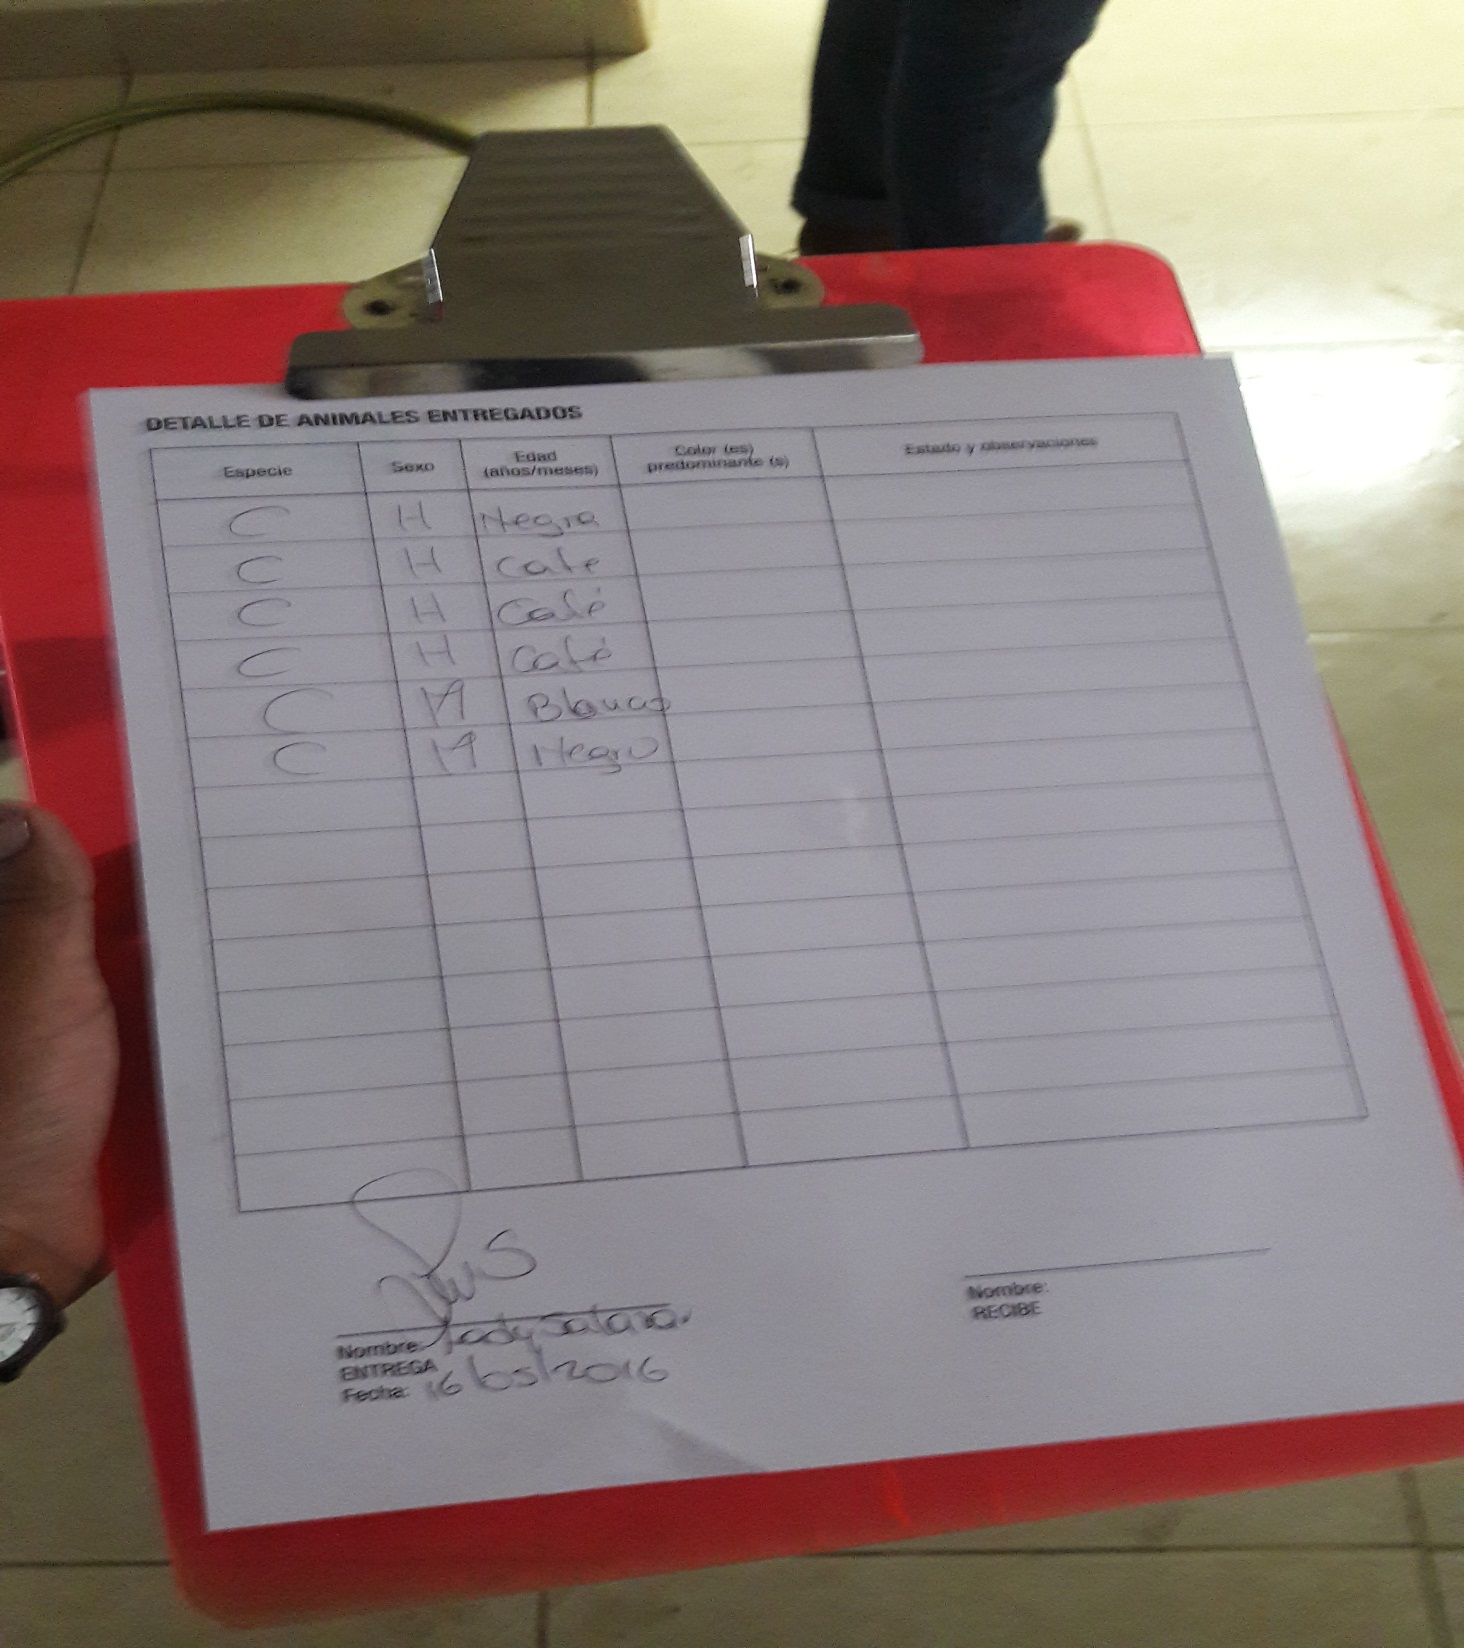 DETALLE DE ANIMALES ENTREGADOS
Especie Sexo Edad (años/meses) Color (es) predominante (s) Estado y observaciones
C H Negra
C H Cafe
C H Café
C H Café
C M Blanco
C M Negro
Nombre: Nombre:
ENTREGA RECIBE
Fecha: 16/05/2016